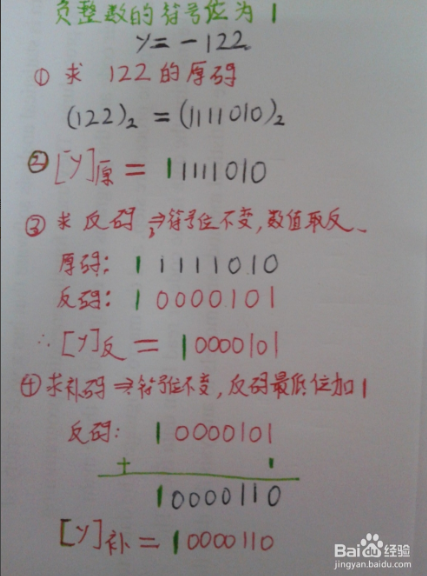 负整数的符号位为1
y=-122
① 求 122 的原码
(122)₂ = (1111010)₂
② [y]原 = 11111010
③ 求反码 ⇒符号位不变,数值取反
原码: 1 1111010
反码: 1 0000101
∴ [y]反 = 10000101
④ 求补码 ⇒符号位不变,反码最低位加1
反码: 1 0000101
+ 1
10000110
[y]补 = 10000110
Baidu经验
jingyan.baidu.com